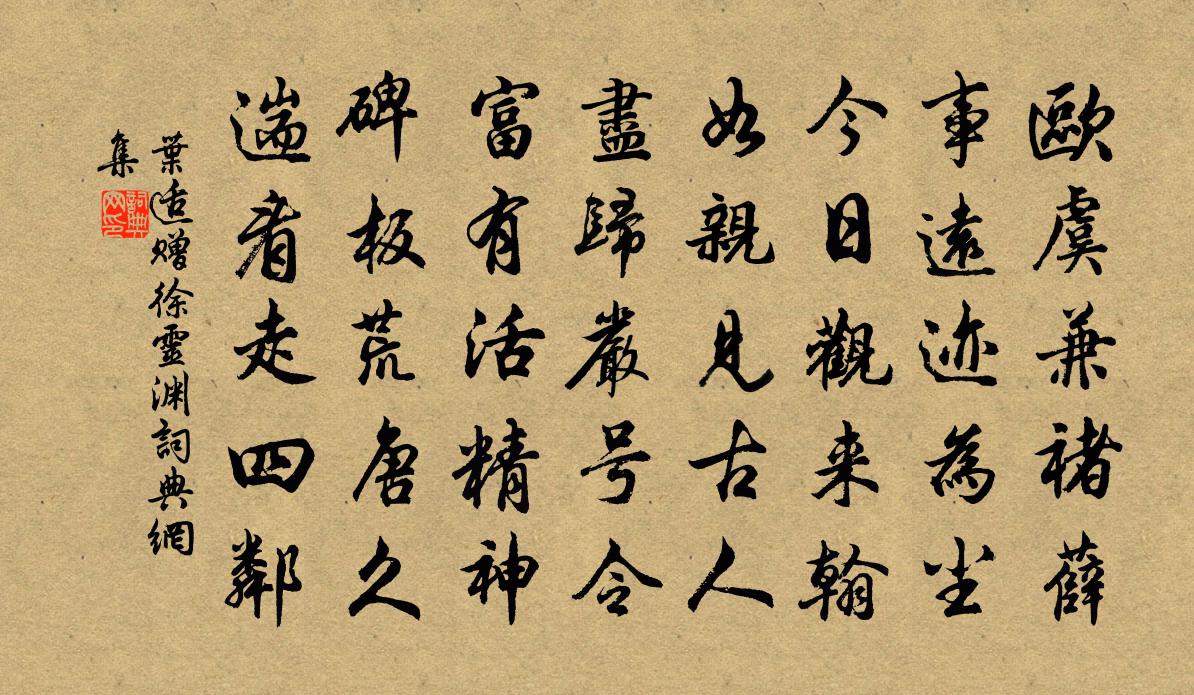 歐虞兼褚薛
事遠迹為尘
今日觀来翰
如親見古人
盡歸嚴号令
富有活精神
碑板荒唐久
遄看走四鄰
葉适赠徐靈渊詞典網
集
詞典网印